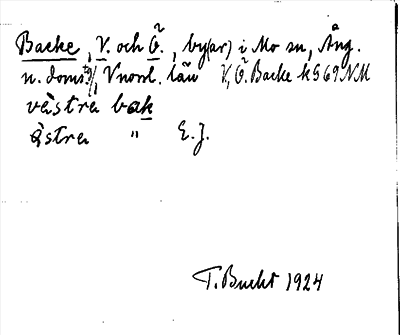 Backe, V. och Ö., by(ar) i Mo sn, Ång.
n. doms., Vnorrl. län V, Ö. Backe k 569 NM
västra bak
östra " E. J.
T. Bucht 1924